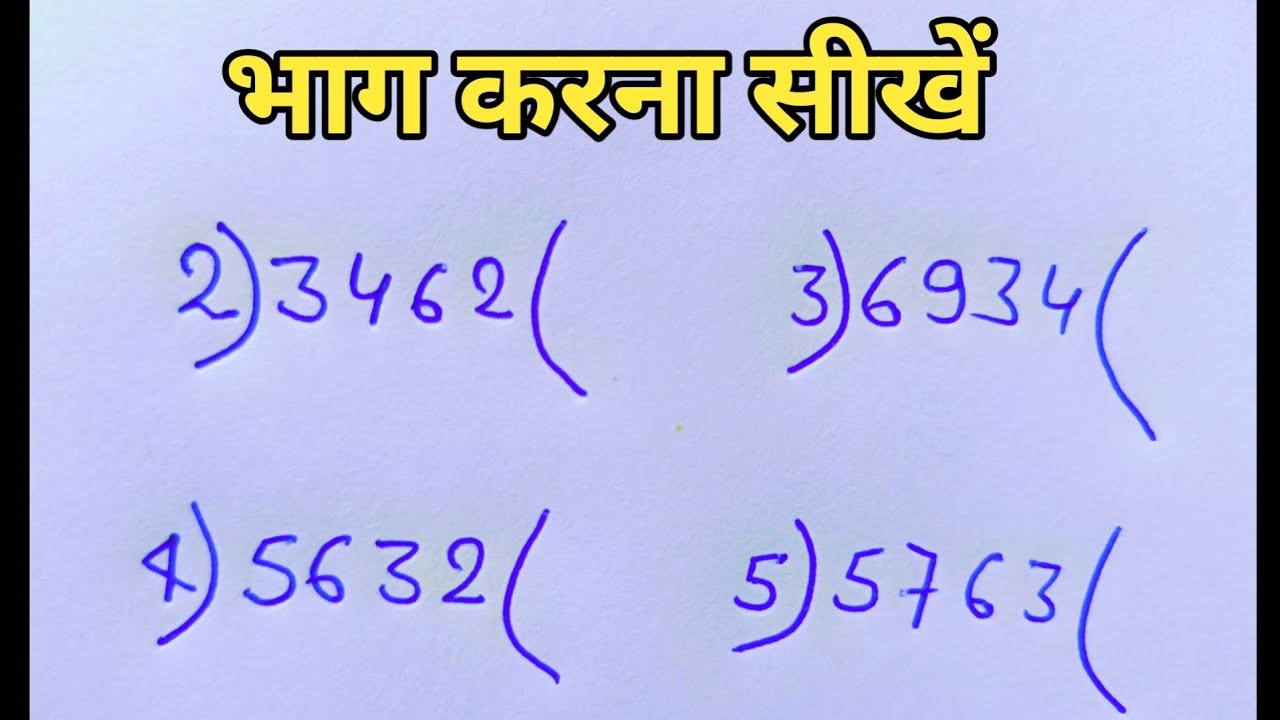 भाग करना सीखें
2)3462(
3)6934(
4)5632(
5)5763(